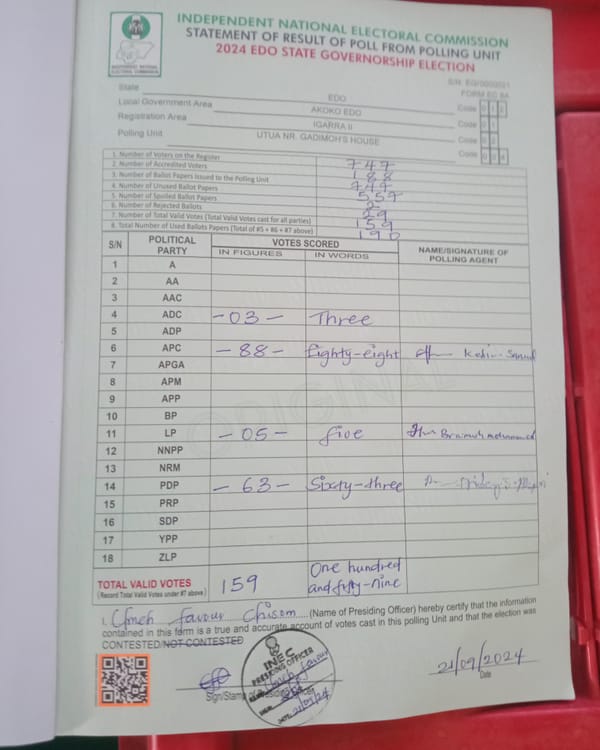 INDEPENDENT NATIONAL ELECTORAL COMMISSION
STATEMENT OF RESULT OF POLL FROM POLLING UNIT
2024 EDO STATE GOVERNORSHIP ELECTION
INDEPENDENT NATIONAL ELECTORAL COMMISSION
FORM EC 8A
State EDO Code
Local Government Area AKOKO EDO Code
Registration Area IGARRA II Code
Polling Unit UTUA NR. GADIMOH'S HOUSE Code
1. Number of Voters on the Register 747
2. Number of Accredited Voters 188
3. Number of Ballot Papers Issued to the Polling Unit 747
4. Number of Unused Ballot Papers 557
5. Number of Spoiled Ballot Papers 2
6. Number of Rejected Ballots 29
7. Number of Total Valid Votes (Total Valid Votes cast for all parties) 159
8. Total Number of Used Ballots Papers (Total of #5 + #6 + #7 above) 190
S/N POLITICAL PARTY VOTES SCORED NAME/SIGNATURE OF POLLING AGENT
IN FIGURES IN WORDS
1 A
2 AA
3 AAC
4 ADC -03- Three
5 ADP
6 APC -88- Eighty-eight
7 APGA
8 APM
9 APP
10 BP
11 LP -05- five
12 NNPP
13 NRM
14 PDP -63- Sixty-three
15 PRP
16 SDP
17 YPP
18 ZLP
TOTAL VALID VOTES 159 One hundred and fifty-nine
(Record Total Valid Votes under #7 above)
I, favour Chisom (Name of Presiding Officer) hereby certify that the information
contained in this form is a true and accurate account of votes cast in this polling Unit and that the election was
CONTESTED/NOT CONTESTED
INEC
PRESIDING OFFICER
21/09/24
Sign/Stamp
21/09/2024
Date
ORIGINAL